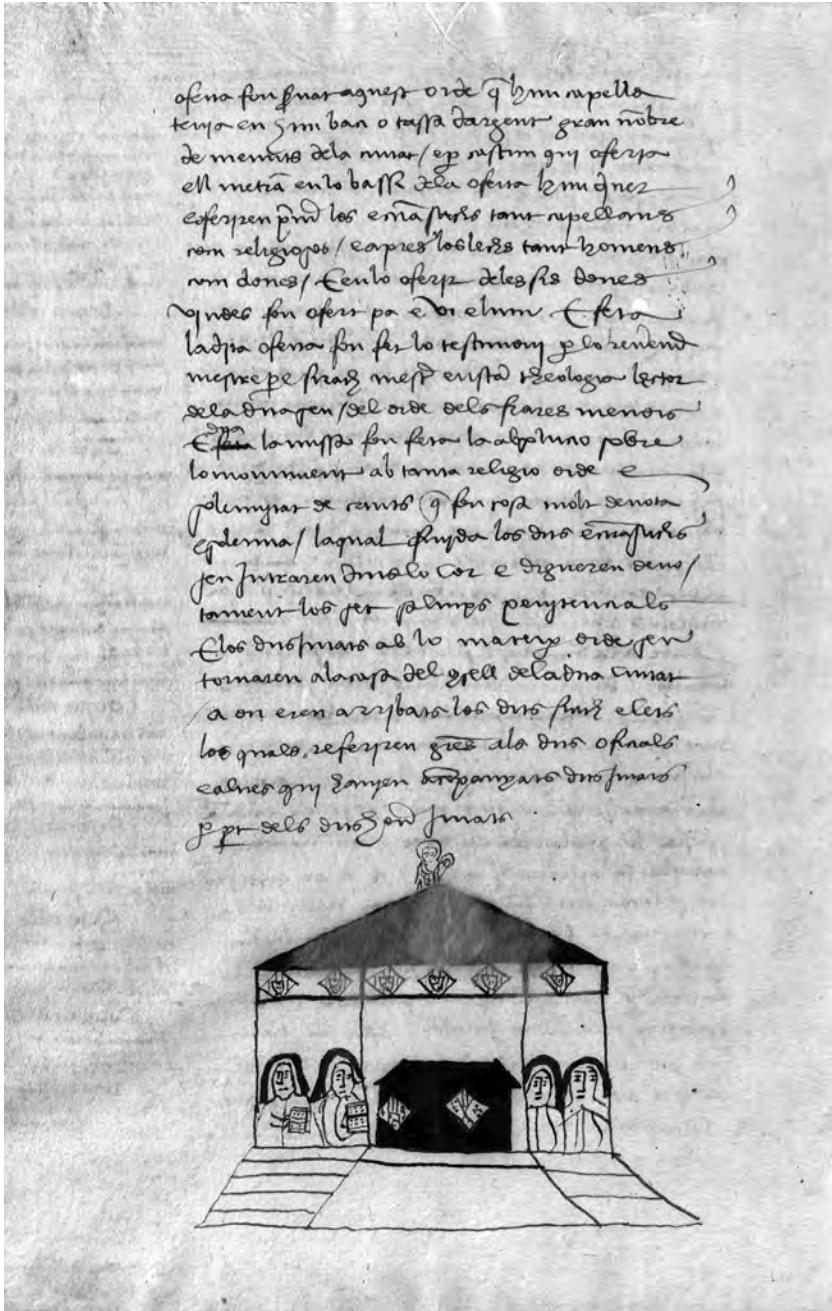 oferta fon s̃uat aquest orde q̃ hun capella
tenia en hun baci o tassa dargent gran nõbre
de menuts dela ciutat / e p̱ cascun qui oferia
ell metia en lo bassi dela oferta hun diner
e oferiren p̃m̃ los ecc̃iastichs tant capellans
com religiosos / e apres los lechs tant homens
com dones / E en lo oferir deles sis dones
viudes fon ofert pa e vi e lum E feta
la dita oferta fon fet lo testimoni p̱ lo reuerend
mestre pere mestr̃ en sc̃a theologia lector
dela del orde dels frares menors
E dita la missa fon feta la absolucio sobre
lo moniment ab tanta religio orde e
solemnitat de cants q̃ fon cosa molt deuota
e / laqual finida los dits ecc̃iastichs
sen intraren dins lo cor e digueren deuo /
tament los set salmps penitencials
E los dits jurats ab lo mateix orde sen
tornaren ala casa del ꝯsell dela dita ciutat
/ a on eren arribats los dits sindichs e lets
los quals referiren gr̃es als dits oficials
e altres qui hauien acõpanyats dits jurats
p̱ p̱t dels dits hon̄ jurats